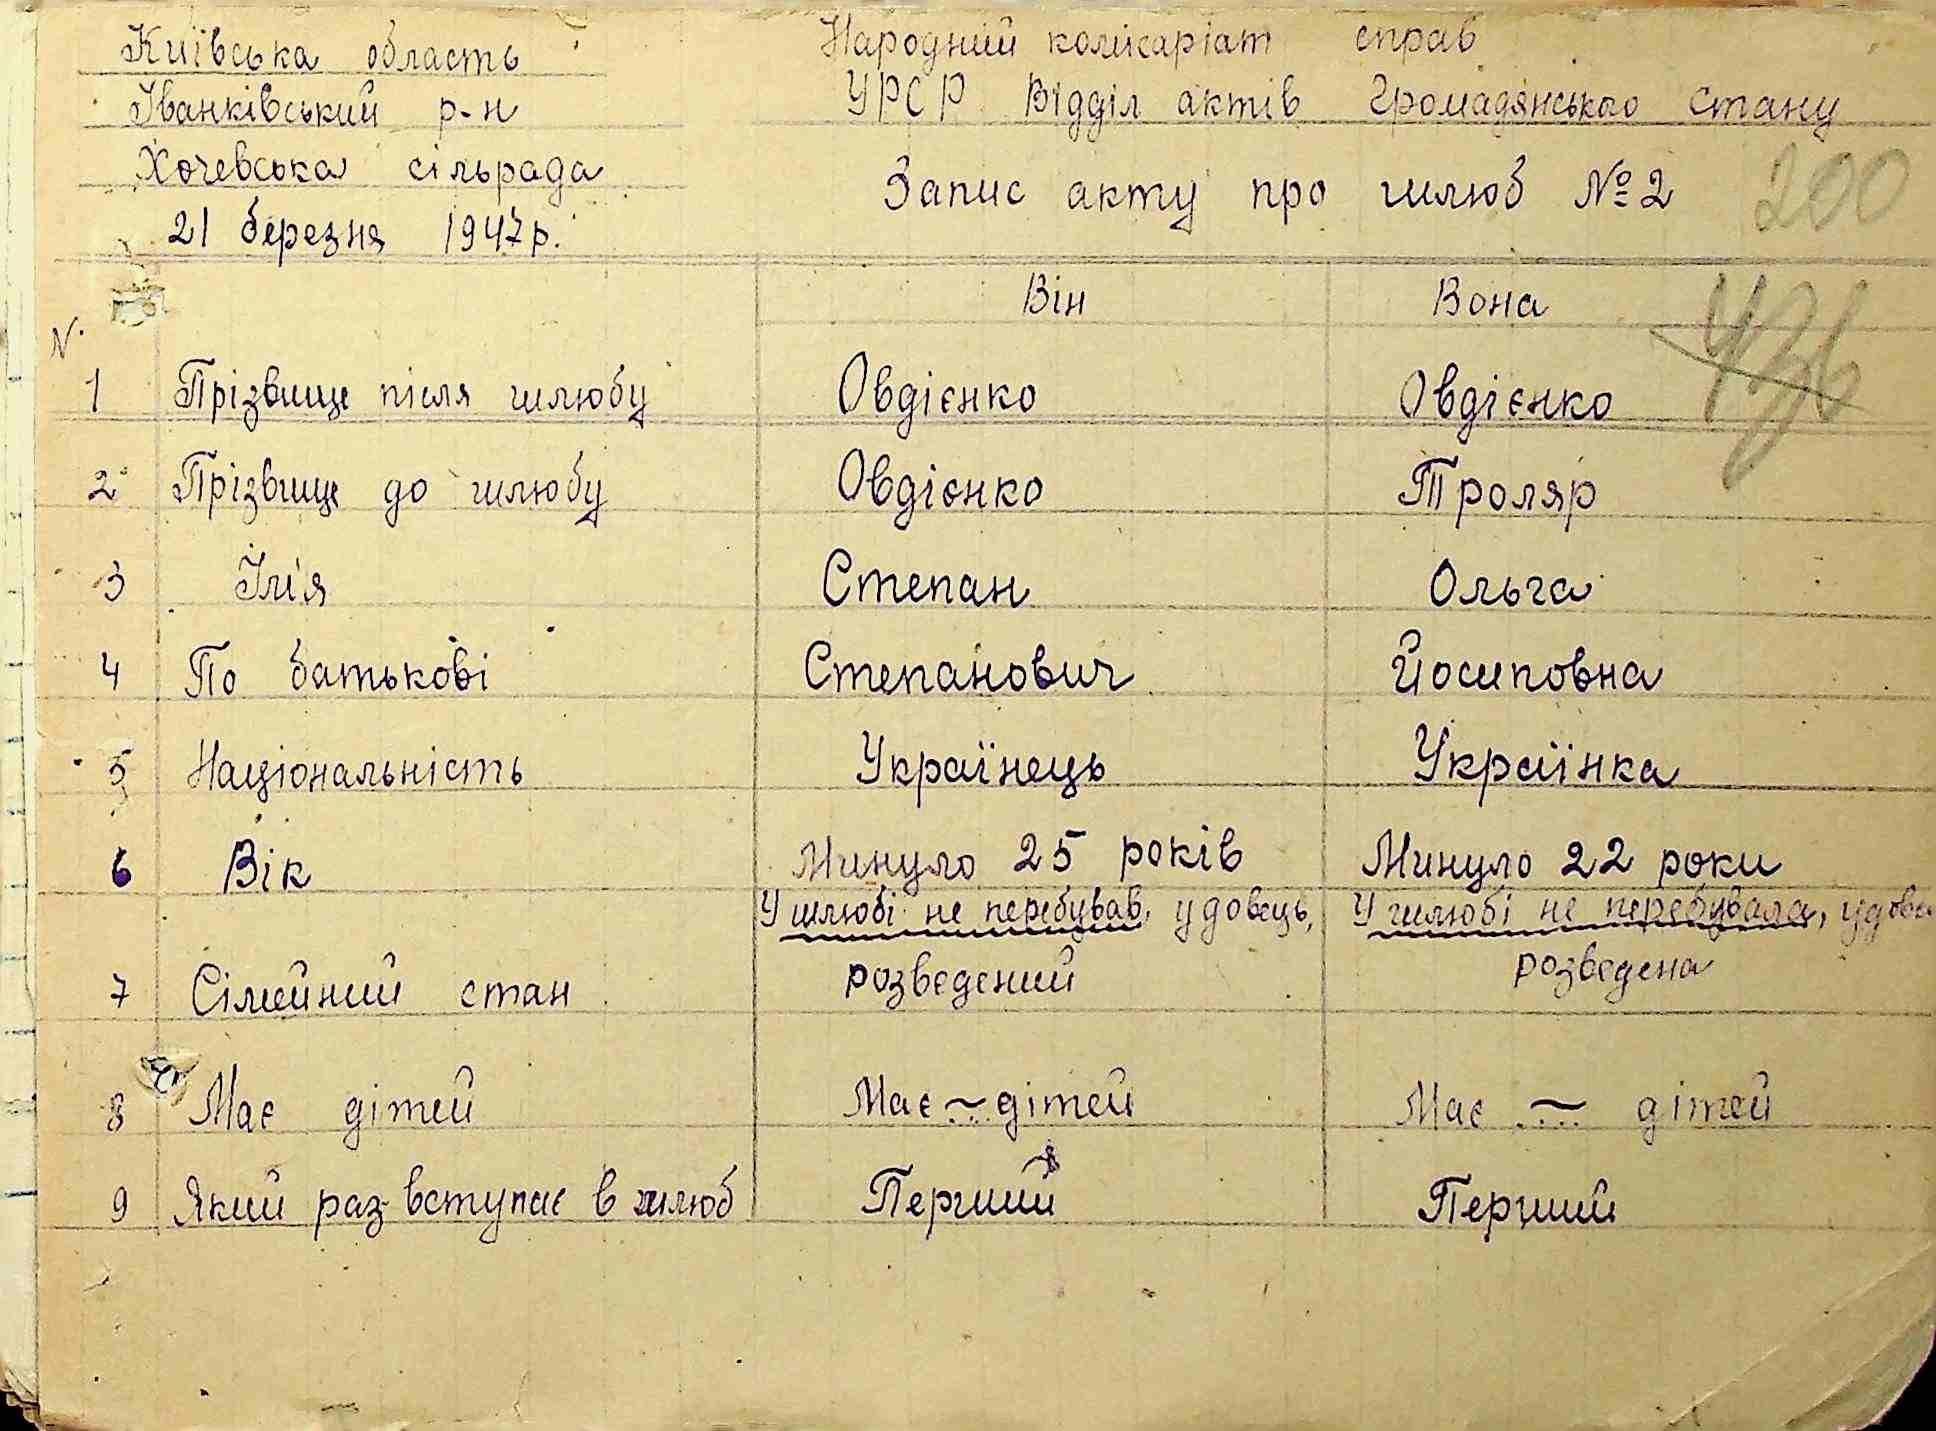 Київська область
Іванківський р-н
Хочевська сільрада
21 березня 1947р.
Народний комісаріат справ
УРСР Відділ актів Громадянського стану
Запис акту про шлюб №2
200
436
Він Вона
N.
1 Прізвище після шлюбу Овдієнко Овдієнко
2 Прізвище до шлюбу Овдієнко Троляр
3 Ім'я Степан Ольга
4 По батькові Степанович Йосиповна
5 Національність Українець Українка
6 Вік Минуло 25 років Минуло 22 роки
У шлюбі не перебував, удовець, У шлюбі не перебувала, удова
7 Сімейний стан розведений розведена
8 Має дітей Має ~ дітей Має ~ дітей
9 Який раз вступає в шлюб Перший Перший